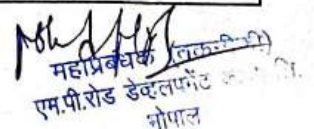 महाप्रबंधक (तकनीकी)
एम.पी.रोड डेव्हलपमेंट
भोपाल